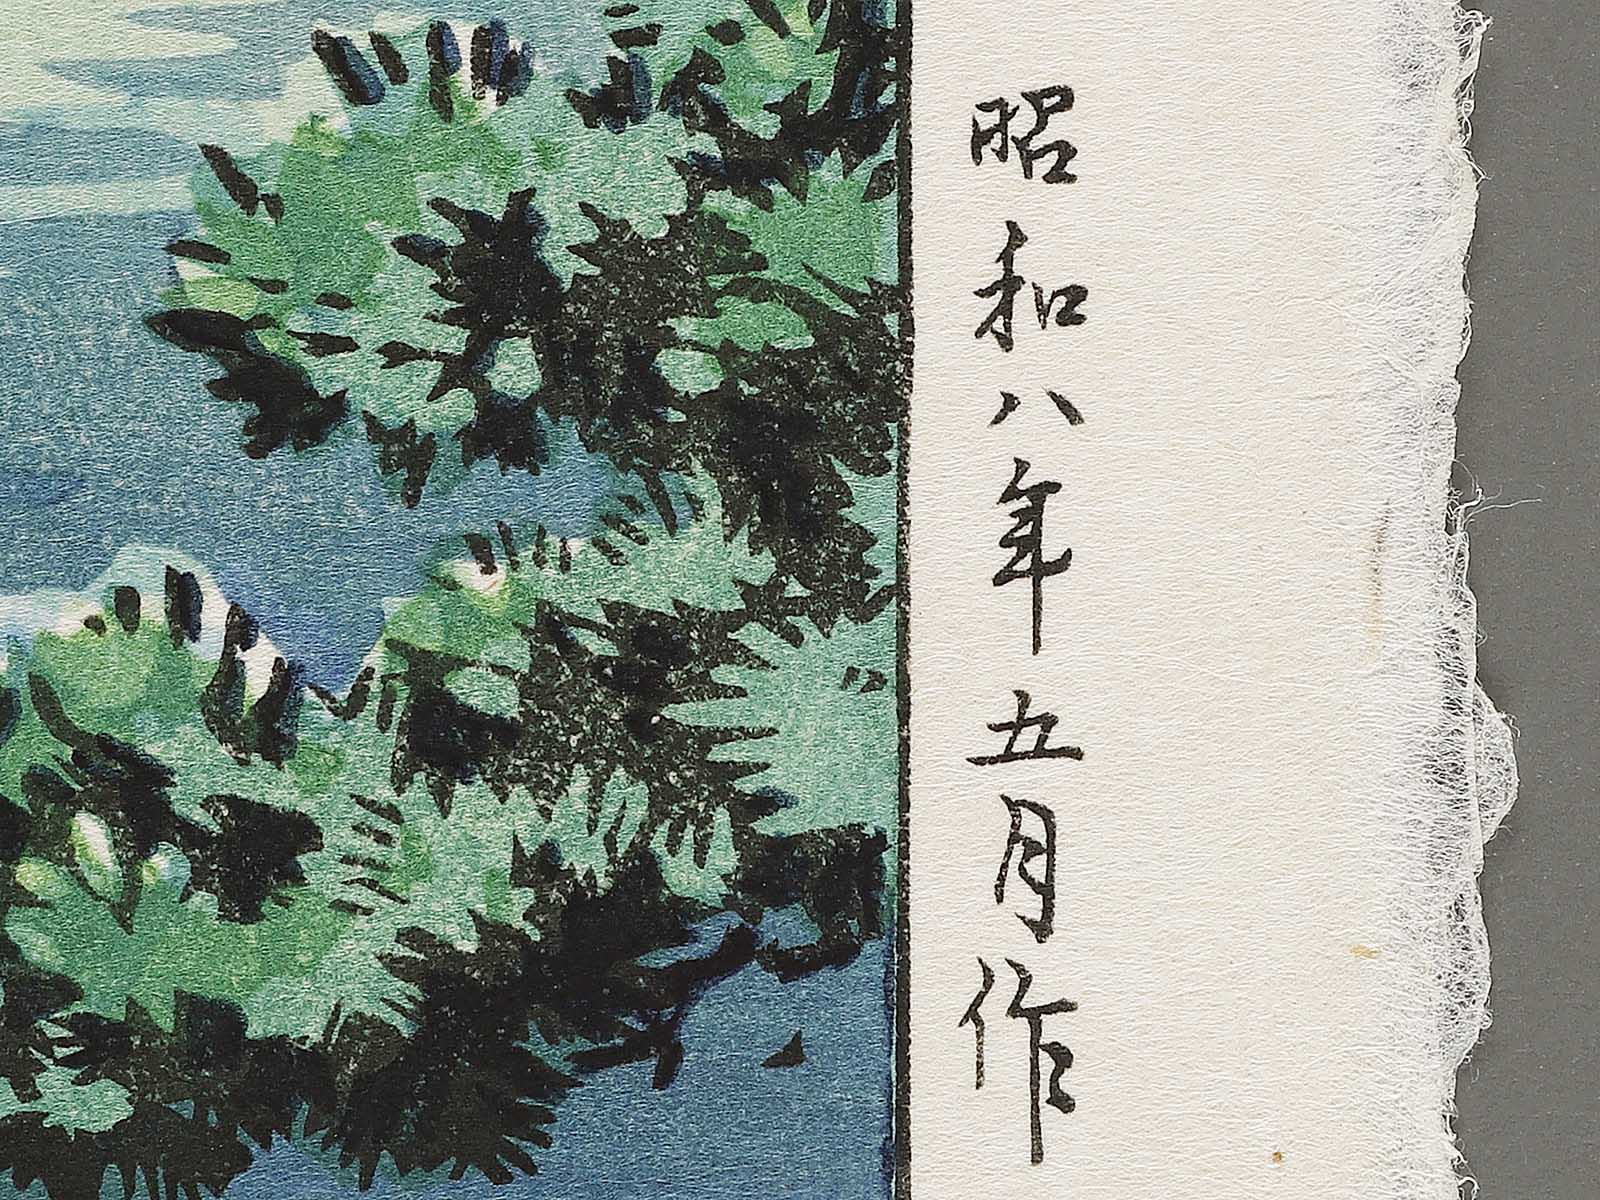 昭和八年五月作